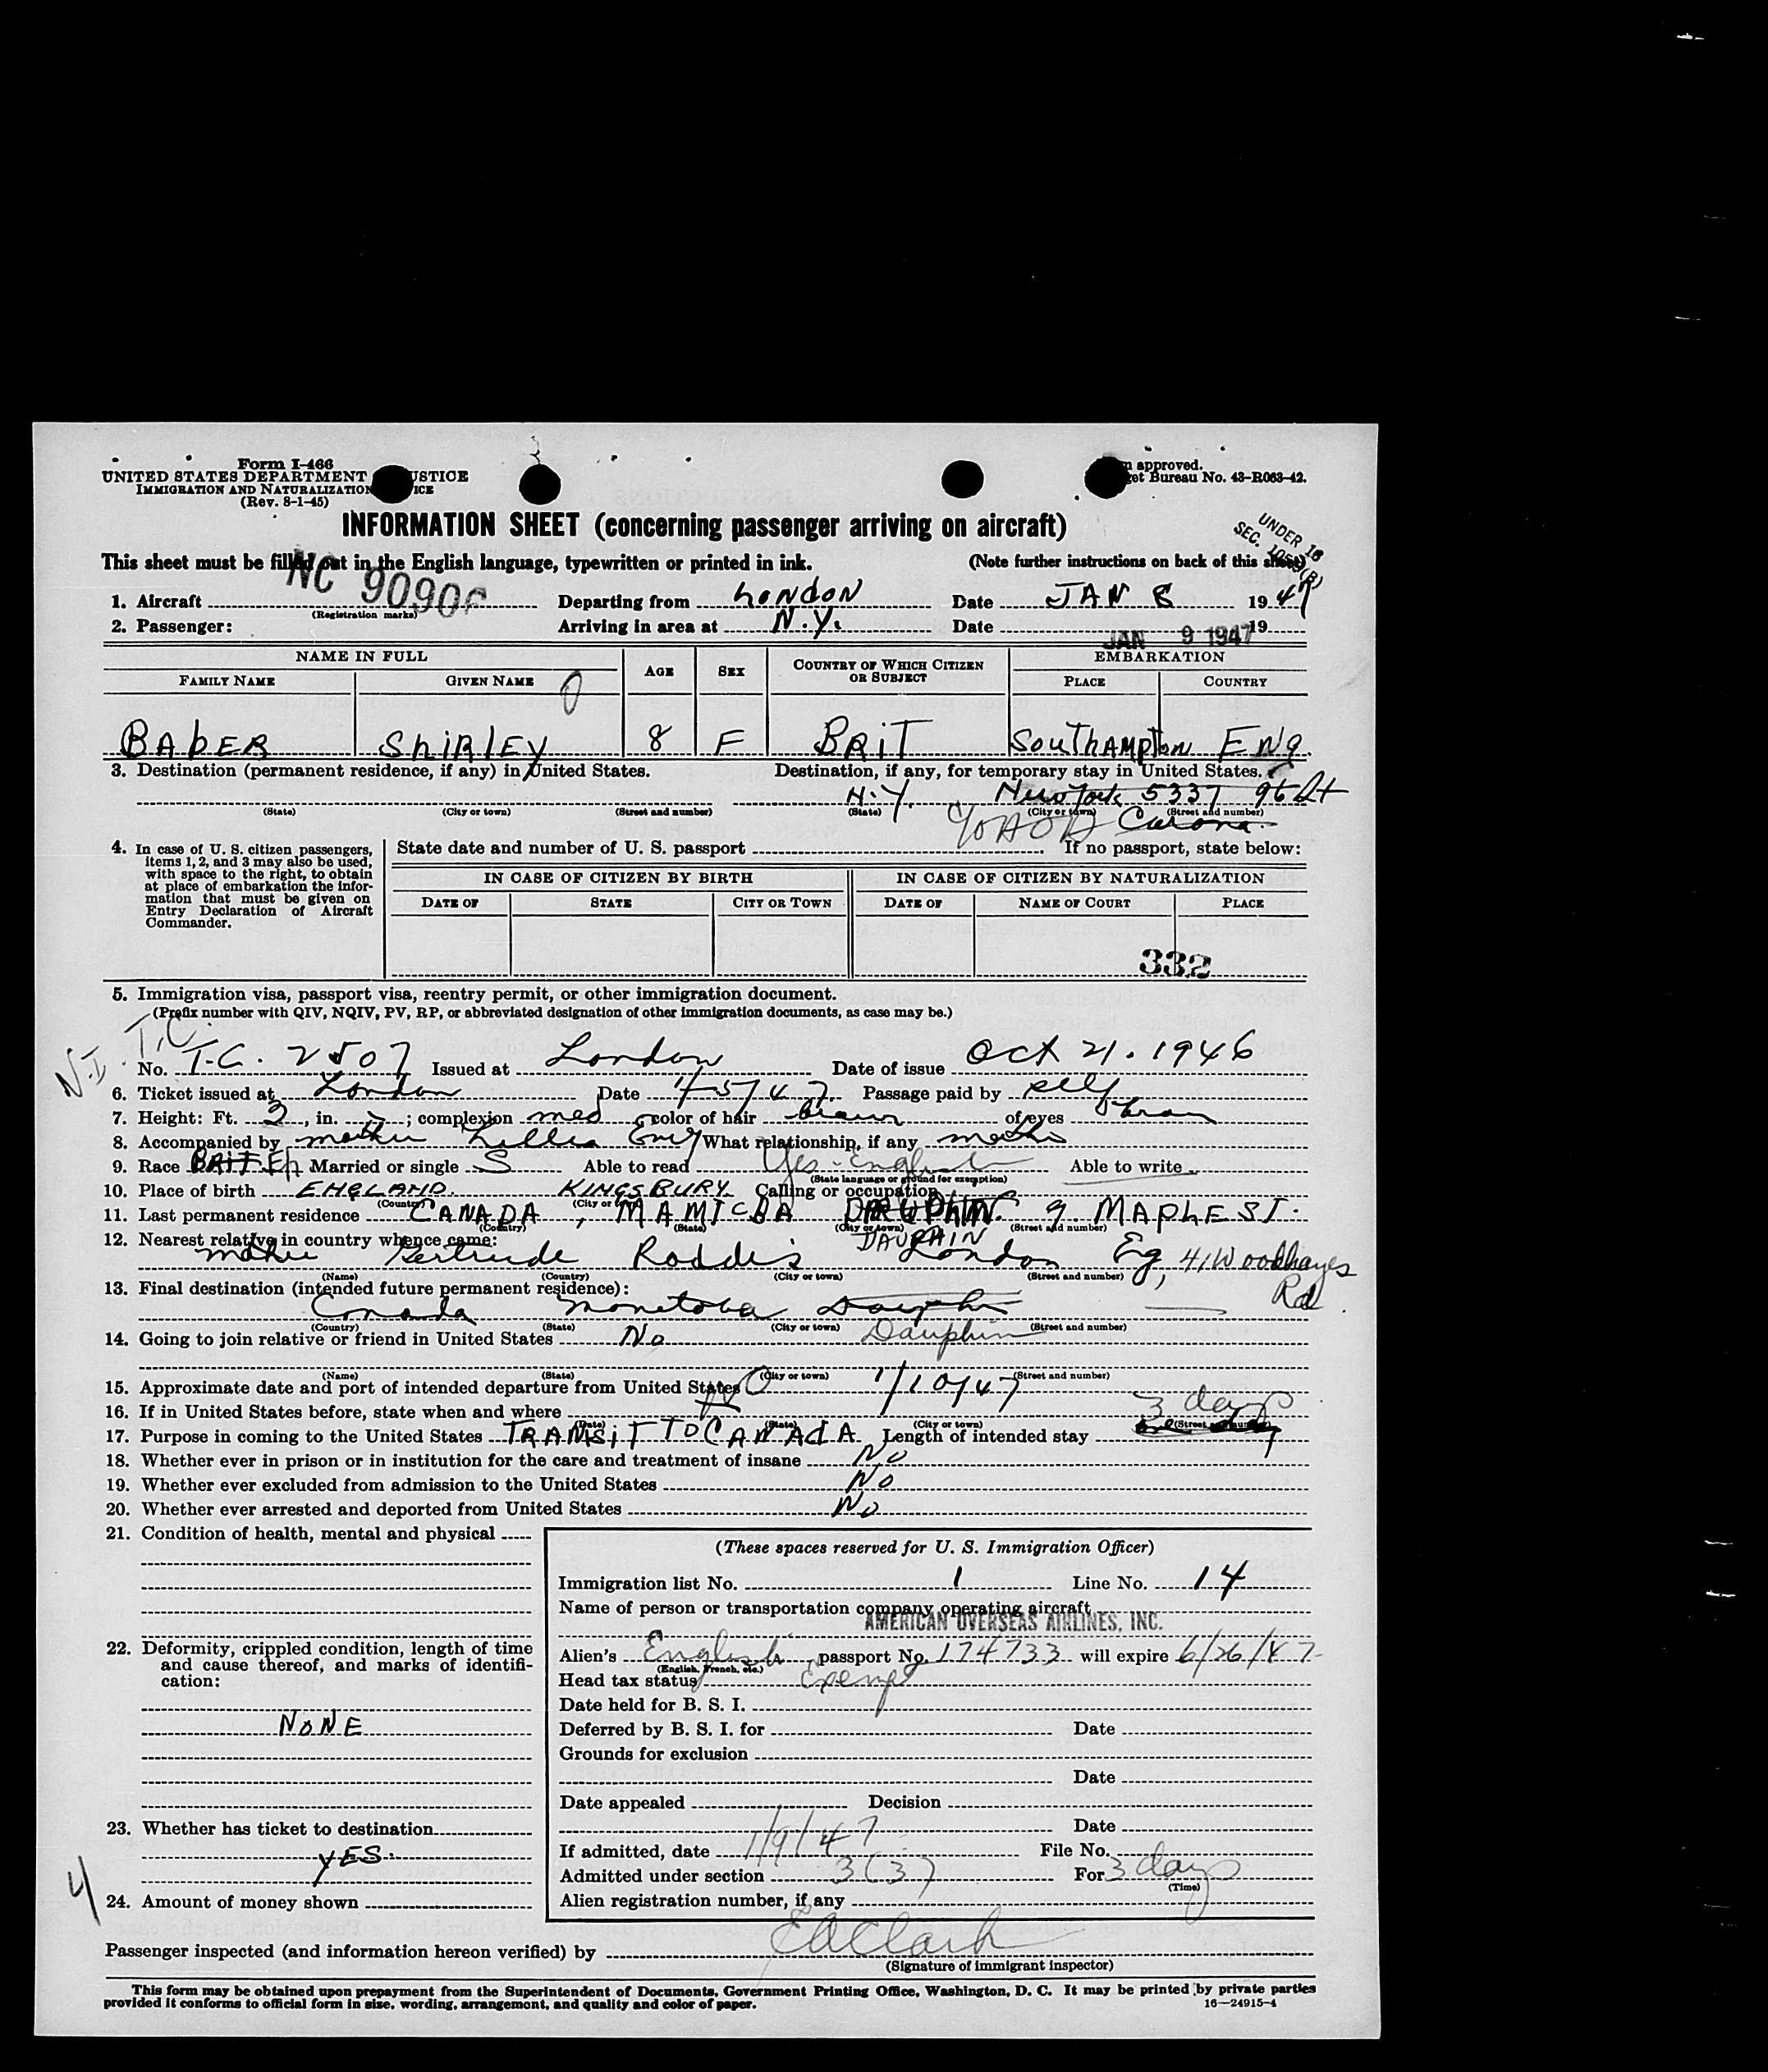 Form I-466
UNITED STATES DEPARTMENT USTICE
IMMIGRATION AND NATURALIZATION ICE
(Rev. 8-1-45)
approved.
et Bureau No. 43-R063-42.
INFORMATION SHEET (concerning passenger arriving on aircraft)
UNDER 16
SEC.
This sheet must be filled out in the English language, typewritten or printed in ink. (Note further instructions on back of this sheet)
NC 90906
1. Aircraft Departing from LONDON Date JAN 8 1947
(Registration marks)
2. Passenger: Arriving in area at N.Y. Date JAN 9 1947 19
NAME IN FULL AGE SEX COUNTRY OF WHICH CITIZEN OR SUBJECT EMBARKATION
FAMILY NAME GIVEN NAME PLACE COUNTRY
BAbER ShiRlEY 8 F BRiT SouThAMpton ENg.
3. Destination (permanent residence, if any) in United States. Destination, if any, for temporary stay in United States.
N.Y. New York 5337 96 St
(State) (City or town) (Street and number) (State) (City or town) (Street and number)
Corona.
4. In case of U. S. citizen passengers, items 1, 2, and 3 may also be used, with space to the right, to obtain at place of embarkation the information that must be given on Entry Declaration of Aircraft Commander.
State date and number of U. S. passport If no passport, state below:
IN CASE OF CITIZEN BY BIRTH IN CASE OF CITIZEN BY NATURALIZATION
DATE OF STATE CITY OR TOWN DATE OF NAME OF COURT PLACE
332
5. Immigration visa, passport visa, reentry permit, or other immigration document.
(Prefix number with QIV, NQIV, PV, RP, or abbreviated designation of other immigration documents, as case may be.)
N.I. T.C.
No. T.C. 2507 Issued at London Date of issue Oct 21. 1946
6. Ticket issued at London Date 1/5/47. Passage paid by self
7. Height: Ft. 3, in. ; complexion med color of hair brown of eyes brown
8. Accompanied by mother What relationship, if any mother
9. Race Married or single S Able to read Yes-English Able to write
(State language or ground for exemption)
10. Place of birth ENGLAND. KINGSBURY. Calling or occupation
(Country) (City or town)
11. Last permanent residence CANADA, 9. MAPLE ST.
(Country) (State) (City or town) (Street and number)
12. Nearest relative in country whence came:
mother Gertrude Roddis London Eg, 41 Woodhayes Rd.
(Name) (Country) (City or town) (Street and number)
13. Final destination (intended future permanent residence):
Canada Manitoba Dauphin
(Country) (State) (City or town) (Street and number)
14. Going to join relative or friend in United States No Dauphin
(Name) (State) (City or town) (Street and number)
15. Approximate date and port of intended departure from United States 1/10/47
16. If in United States before, state when and where No
(Date) (State) (City or town) (Street and number)
17. Purpose in coming to the United States TRANSiT TO CANAdA Length of intended stay 3 days
18. Whether ever in prison or in institution for the care and treatment of insane No
19. Whether ever excluded from admission to the United States No
20. Whether ever arrested and deported from United States No
21. Condition of health, mental and physical
22. Deformity, crippled condition, length of time and cause thereof, and marks of identification:
NONE
23. Whether has ticket to destination
YES.
4
24. Amount of money shown
(These spaces reserved for U. S. Immigration Officer)
Immigration list No. 1 Line No. 14
Name of person or transportation company operating aircraft
AMERICAN OVERSEAS AIRLINES, INC.
Alien's English passport No. 174733 will expire 6/26/47
(English, French, etc.)
Head tax status Exempt
Date held for B. S. I.
Deferred by B. S. I. for Date
Grounds for exclusion
Date
Date appealed Decision
Date
If admitted, date 1/9/47 File No.
Admitted under section 3(3) For 3 days
(Time)
Alien registration number, if any
Passenger inspected (and information hereon verified) by E A Clark
(Signature of immigrant inspector)
This form may be obtained upon prepayment from the Superintendent of Documents, Government Printing Office, Washington, D. C. It may be printed by private parties
provided it conforms to official form in size, wording, arrangement, and quality and color of paper. 16—24915-4